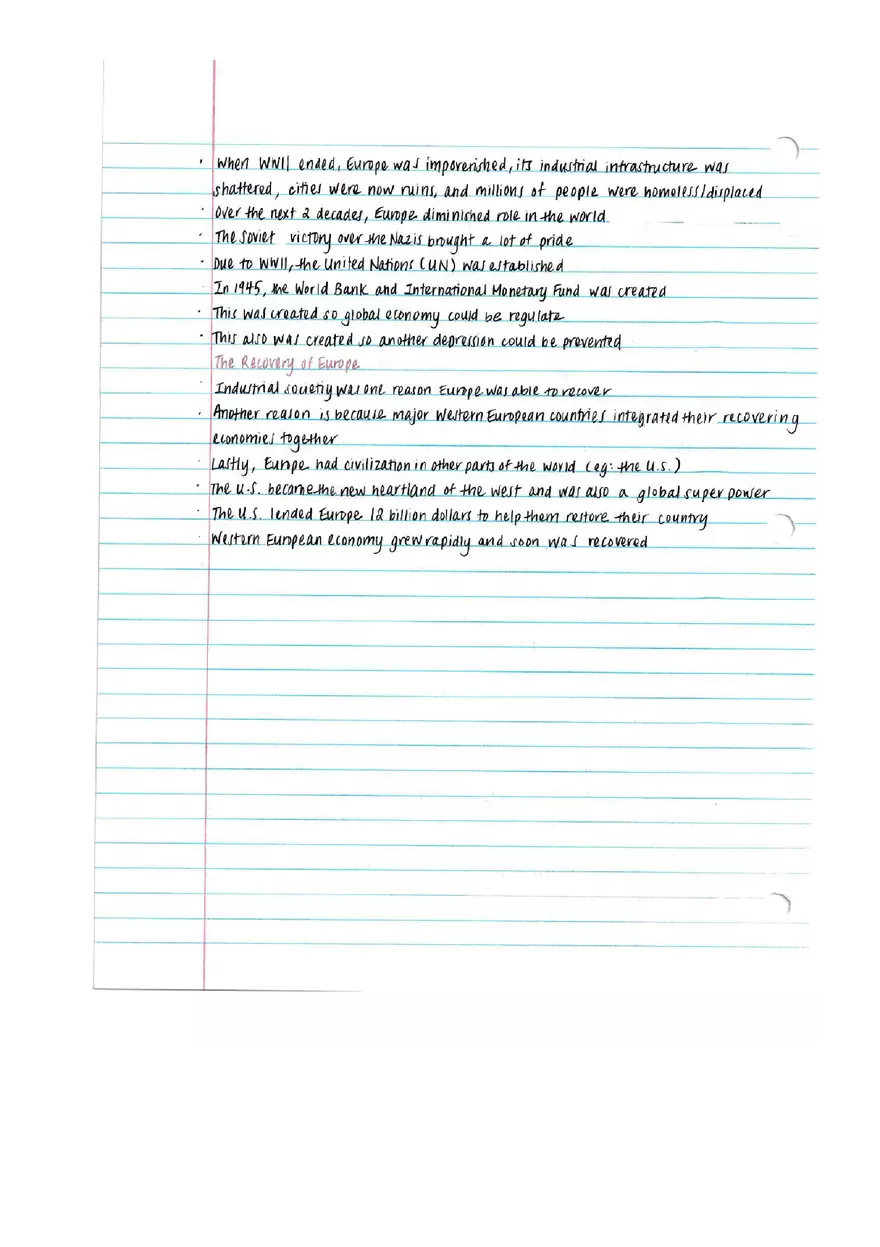 · When WWII ended, Europe was impoverished, its industrial infrastructure was
shattered, cities were now ruins, and millions of people were homeless/displaced
· Over the next 2 decades, Europe diminished role in the world
· The Soviet victory over the Nazis brought a lot of pride
· Due to WWII, the United Nations (UN) was established
· In 1945, the World Bank and International Monetary Fund was created
· This was created so global economy could be regulate
· This also was created so another depression could be prevented
The Recovery of Europe
· Industrial societiy was one reason Europe was able to recover
· Another reason is because major Western European countries integrated their recovering
economies together
· Lastly, Europe had civilization in other parts of the world (eg: the U.S.)
· The U.S. became the new heartland of the west and was also a global super power
· The U.S. lended Europe 12 billion dollars to help them restore their country
· Western European economy grew rapidly and soon was recovered